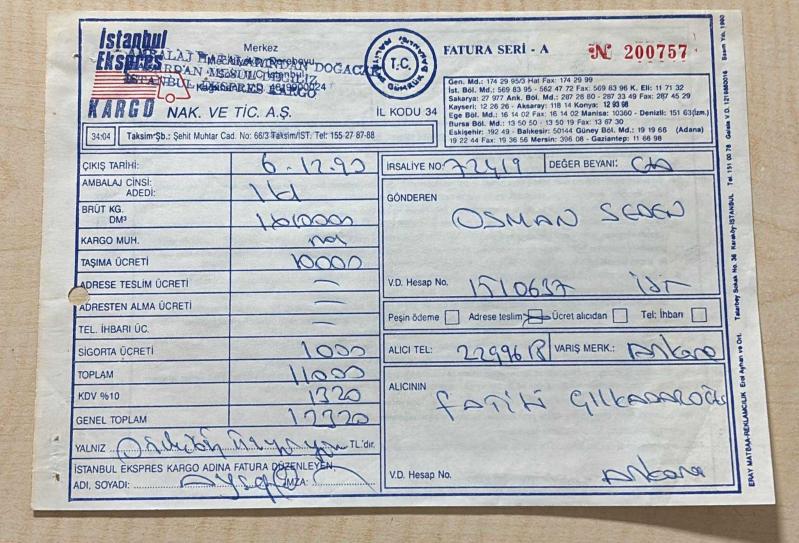 İstanbul
Ekspres
KARGO
Merkez
AMBALAJ HATALARINDAN DOĞACAK
İSTANBUL EKSPRES KARGO
NAK. VE TİC. A.Ş.
İL KODU 34
T.C.
FATURA SERİ - A
№ 200757
34:04
Taksim Şb.: Şehit Muhtar Cad. No: 66/3 Taksim/İST. Tel: 155 27 87-88
Gen. Md.: 174 29 95/3 Hat Fax: 174 29 99
İst. Böl. Md.: 569 83 95 - 562 47 72 Fax: 569 83 96 K. Eli: 11 71 32
Sakarya: 27 977 Ank. Böl. Md.: 287 28 80 - 287 33 49 Fax: 287 45 29
Kayseri: 12 26 26 - Aksaray: 118 14 Konya: 12 93 98
Ege Böl. Md.: 16 14 02 Fax: 16 14 02 Manisa: 10360 - Denizli: 151 63(İzm.)
Bursa Böl. Md.: 13 50 50 - 13 19 50 Fax: 13 67 30
Eskişehir: 192 49 - Balıkesir: 50144 Güney Böl. Md.: 19 19 66 (Adana)
19 22 44 Fax: 19 36 56 Mersin: 396 08 - Gaziantep: 11 66 98
ÇIKIŞ TARİHİ: 6.12.90
AMBALAJ CİNSİ:
ADEDİ:
BRÜT KG.
DM³
KARGO MUH.
TAŞIMA ÜCRETİ 10000
ADRESE TESLİM ÜCRETİ —
ADRESTEN ALMA ÜCRETİ —
TEL. İHBARI ÜC. —
SİGORTA ÜCRETİ 1000
TOPLAM 11000
KDV %10 1320
GENEL TOPLAM 12320
YALNIZ TL'dır.
İSTANBUL EKSPRES KARGO ADINA FATURA DÜZENLEYEN
ADI, SOYADI: İMZA:
İRSALİYE NO: 72419
DEĞER BEYANI:
GÖNDEREN
OSMAN SEDEN
V.D. Hesap No. 1510637 İST
Peşin ödeme
Adrese teslim
Ücret alıcıdan
Tel: İhbarı
ALICI TEL: 22996 18
VARIŞ MERK.: Ankara
ALICININ
FATİH GILKADAROĞLU
V.D. Hesap No.
Ankara